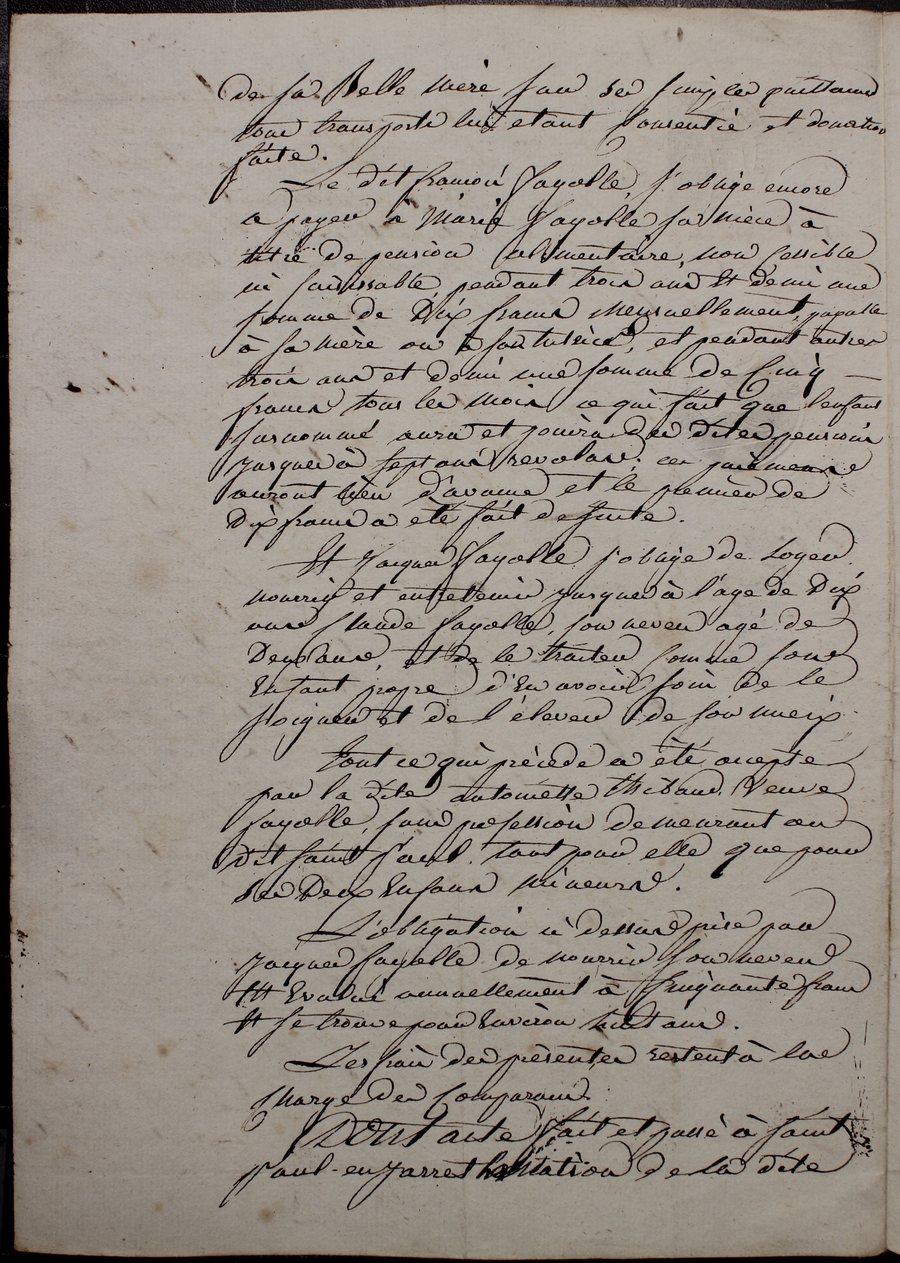 de sa Belle mère sur ses simples quittances
tout transports lui étant consentie et donation
faite.
Le dit françois fayolle, s'oblige encore
a payer à Marie fayolle sa nièce à
titre de pension alimentaire, non cessible
ni saisissable pendant trois ans Et demi une
somme de Dix francs mensuellement, payable
à sa mère ou à sa tutrice, et pendant autres
trois ans et demi une somme de Cinq
francs tous les mois ce qui fait que l'enfant
surnommé aura et jouira des dites pensions
jusques à sept ans revolus; ces paiements
auront lieu d'avance et le premier de
Dix francs a été fait de suite.
Et Jacques fayolle s'oblige de Loger
nourrir et entretenir jusques à l'age de Dix
ans Claude fayolle, son neveu agé de
Deux ans, Et de le traiter Comme son
Enfant propre d'En avoir soin de le
soigner et de l'élever de son mieux.
Tout ce qui précède a été accepté
par la dite antoinette thibaud. Veuve
fayolle, sans profession demeurant au
dit saint paul. tant pour elle que pour
ses Deux Enfans mineurs.
L'obligation ci dessus prise par
Jacques fayolle de nourrir son neveu
Est Evalué annuellement à Cinquante francs
Et se trouve pour Environ huit ans.
Les frais des présentes restent à la
charge des Comparans.
DONT acte fait et passé à saint
paul-en-jarret habitation de la dite